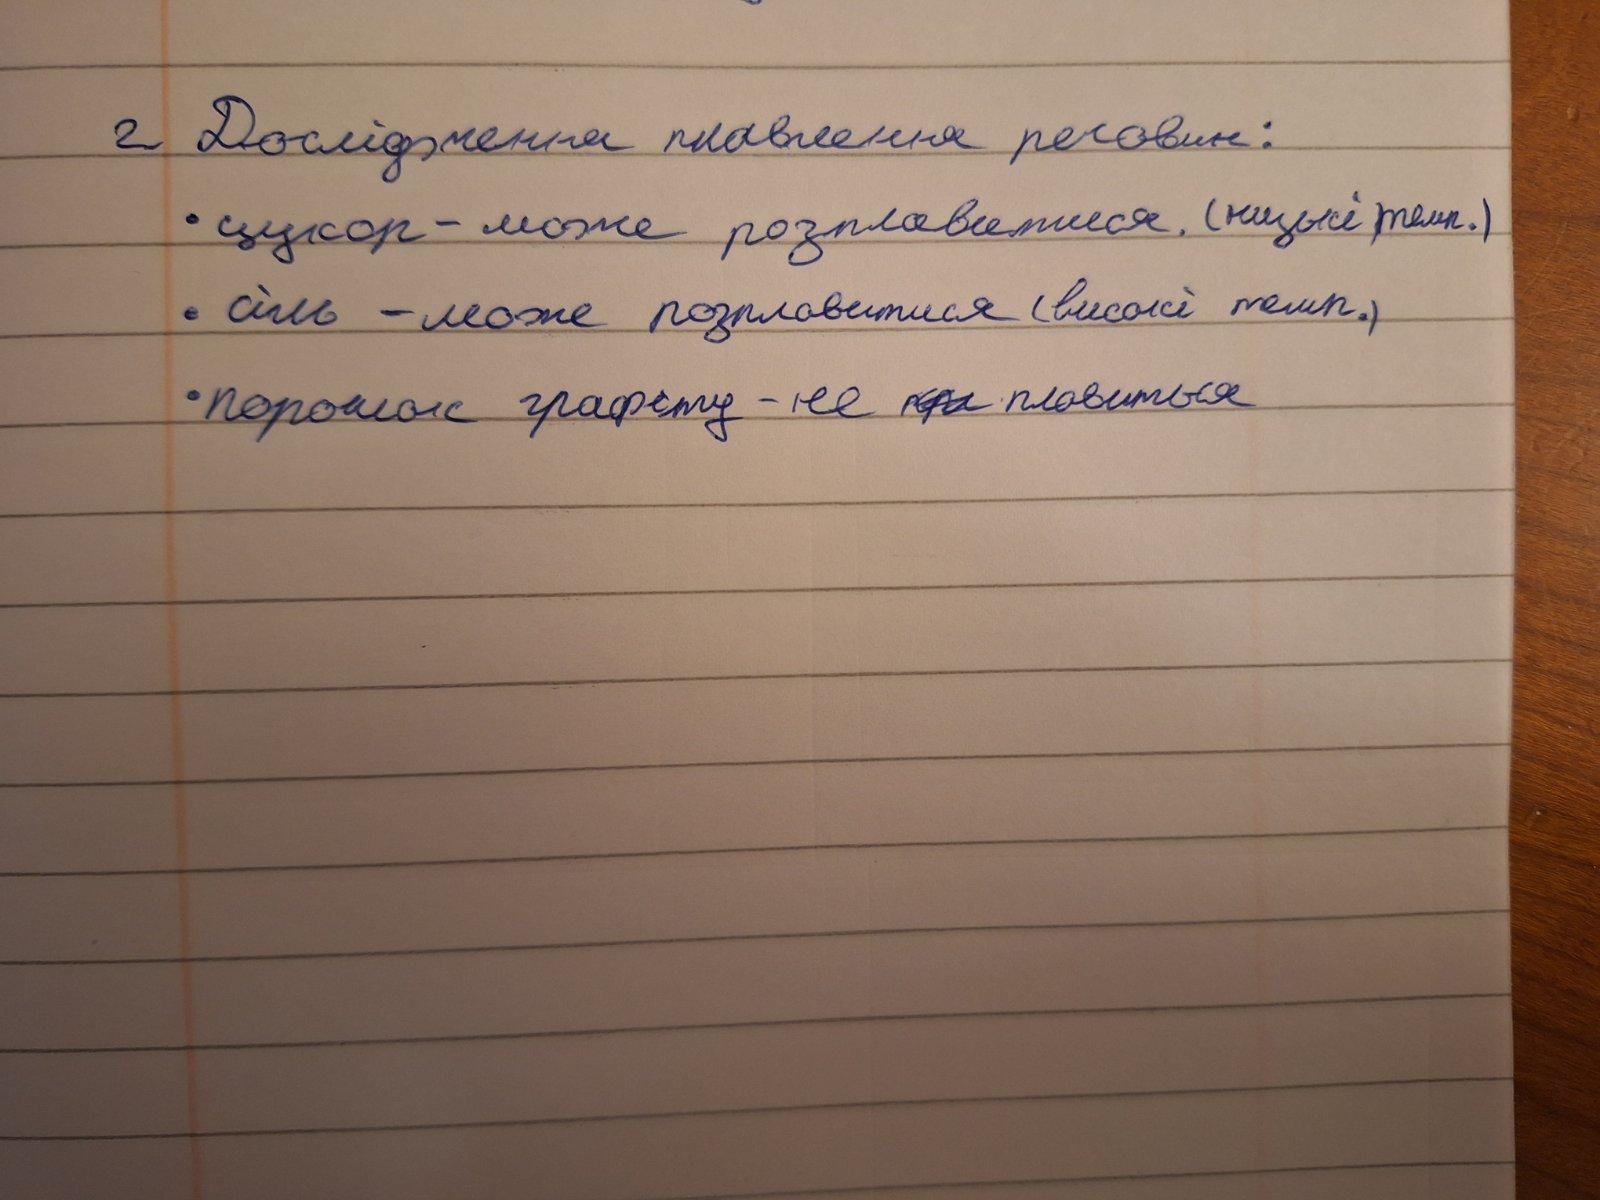 2 Дослідження плавлення речовин:
• цукор - може розплавитися. (низькі темп.)
• сіль - може розплавитися (високі темп.)
• порошок графіту - не плавиться